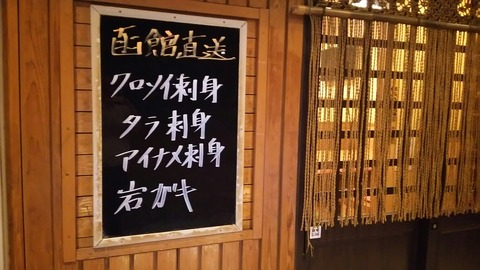 函館直送
クロソイ刺身
タラ刺身
アイナメ刺身
岩ガキ